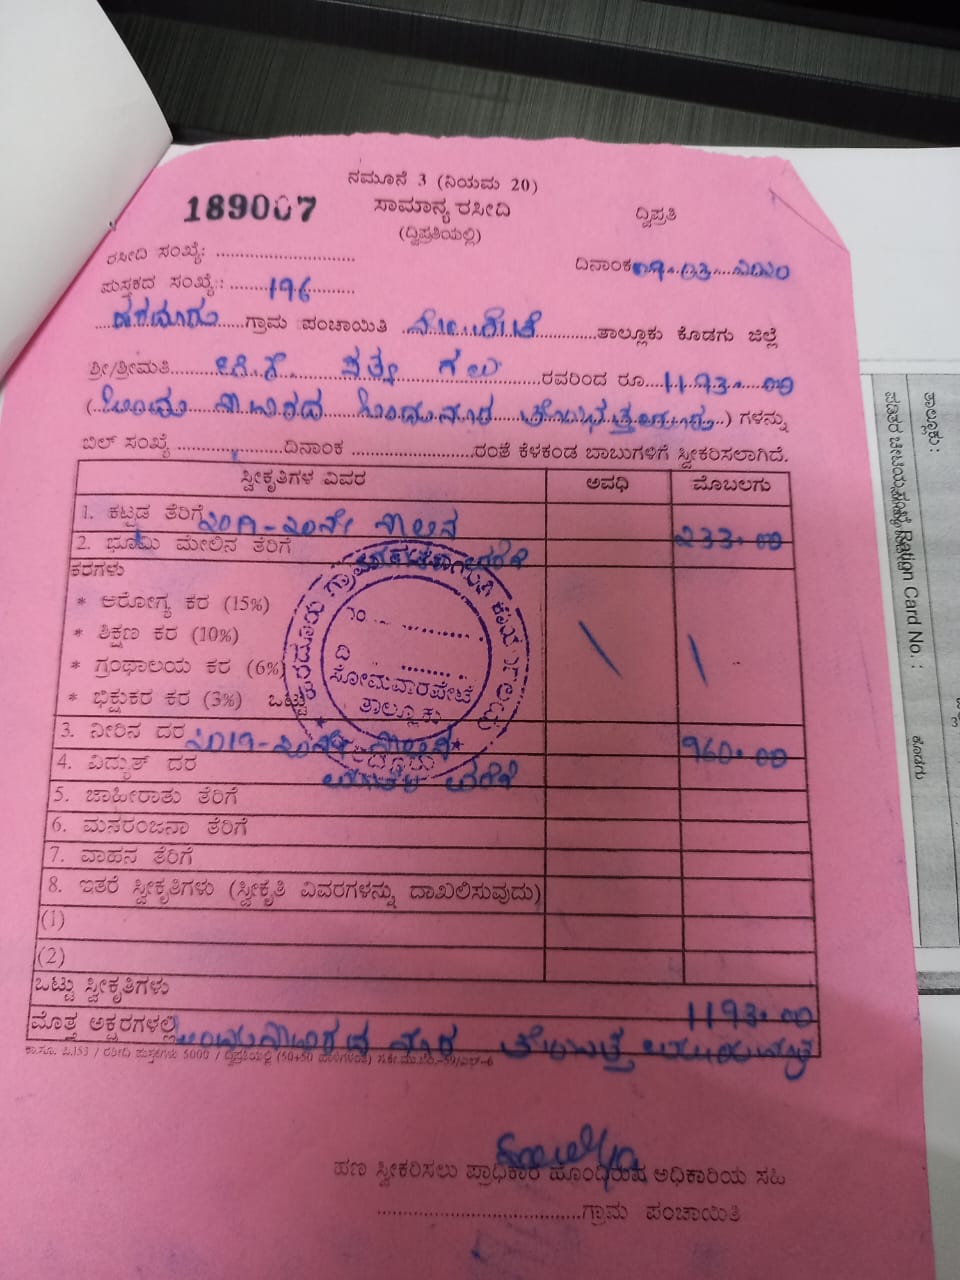 ನಮೂನೆ 3 (ನಿಯಮ 20)
189007 ಸಾಮಾನ್ಯ ರಸೀದಿ ದ್ವಿಪ್ರತಿ
(ದ್ವಿಪ್ರತಿಯಲ್ಲಿ)
ರಸೀದಿ ಸಂಖ್ಯೆ: ............................
ದಿನಾಂಕ 09.03.2020
ಪುಸ್ತಕದ ಸಂಖ್ಯೆ: 196
ಹರದೂರು ಗ್ರಾಮ ಪಂಚಾಯಿತಿ ಸೋ.ಪೇಟೆ ತಾಲ್ಲೂಕು ಕೊಡಗು ಜಿಲ್ಲೆ
ಶ್ರೀ/ಶ್ರೀಮತಿ ರವರಿಂದ ರೂ 1193.00
(ಒಂದು ಸಾವಿರದ ) ಗಳನ್ನು
ಬಿಲ್ ಸಂಖ್ಯೆ ...................ದಿನಾಂಕ ......................ರಂತೆ ಕೆಳಕಂಡ ಬಾಬುಗಳಿಗೆ ಸ್ವೀಕರಿಸಲಾಗಿದೆ.
ಸ್ವೀಕೃತಿಗಳ ವಿವರ ಅವಧಿ ಮೊಬಲಗು
1. ಕಟ್ಟಡ ತೆರಿಗೆ 2019-20ನೇ ಸಾಲಿನ
2. ಭೂಮಿ ಮೇಲಿನ ತೆರಿಗೆ 233.00
ಕರಗಳು
* ಆರೋಗ್ಯ ಕರ (15%)
* ಶಿಕ್ಷಣ ಕರ (10%)
* ಗ್ರಂಥಾಲಯ ಕರ (6%)
* ಭಿಕ್ಷುಕರ ಕರ (3%) ಒಟ್ಟು
ಹರದೂರು ಗ್ರಾಮ ಪಂಚಾಯಿತಿ ಕಾರ್ಯಾಲಯ
ನಂ ..................
ದಿ ........
ಸೋಮವಾರಪೇಟೆ
ತಾಲ್ಲೂಕು
3. ನೀರಿನ ದರ 2019-20ನೇ ಸಾಲಿನ 960.00
4. ವಿದ್ಯುತ್ ದರ
5. ಜಾಹೀರಾತು ತೆರಿಗೆ
6. ಮನರಂಜನಾ ತೆರಿಗೆ
7. ವಾಹನ ತೆರಿಗೆ
8. ಇತರೆ ಸ್ವೀಕೃತಿಗಳು (ಸ್ವೀಕೃತಿ ವಿವರಗಳನ್ನು ದಾಖಲಿಸುವುದು)
(1)
(2)
ಒಟ್ಟು ಸ್ವೀಕೃತಿಗಳು 1193.00
ಮೊತ್ತ ಅಕ್ಷರಗಳಲ್ಲಿ ಒಂದು ಸಾವಿರದ ನೂರ
ಹಣ ಸ್ವೀಕರಿಸಲು ಪ್ರಾಧಿಕಾರ ಹೊಂದಿರುವ ಅಧಿಕಾರಿಯ ಸಹಿ
....................................ಗ್ರಾಮ ಪಂಚಾಯಿತಿ
ತಾಲ್ಲೂಕು :
Ration Card No. :
ಕೊಡಗು